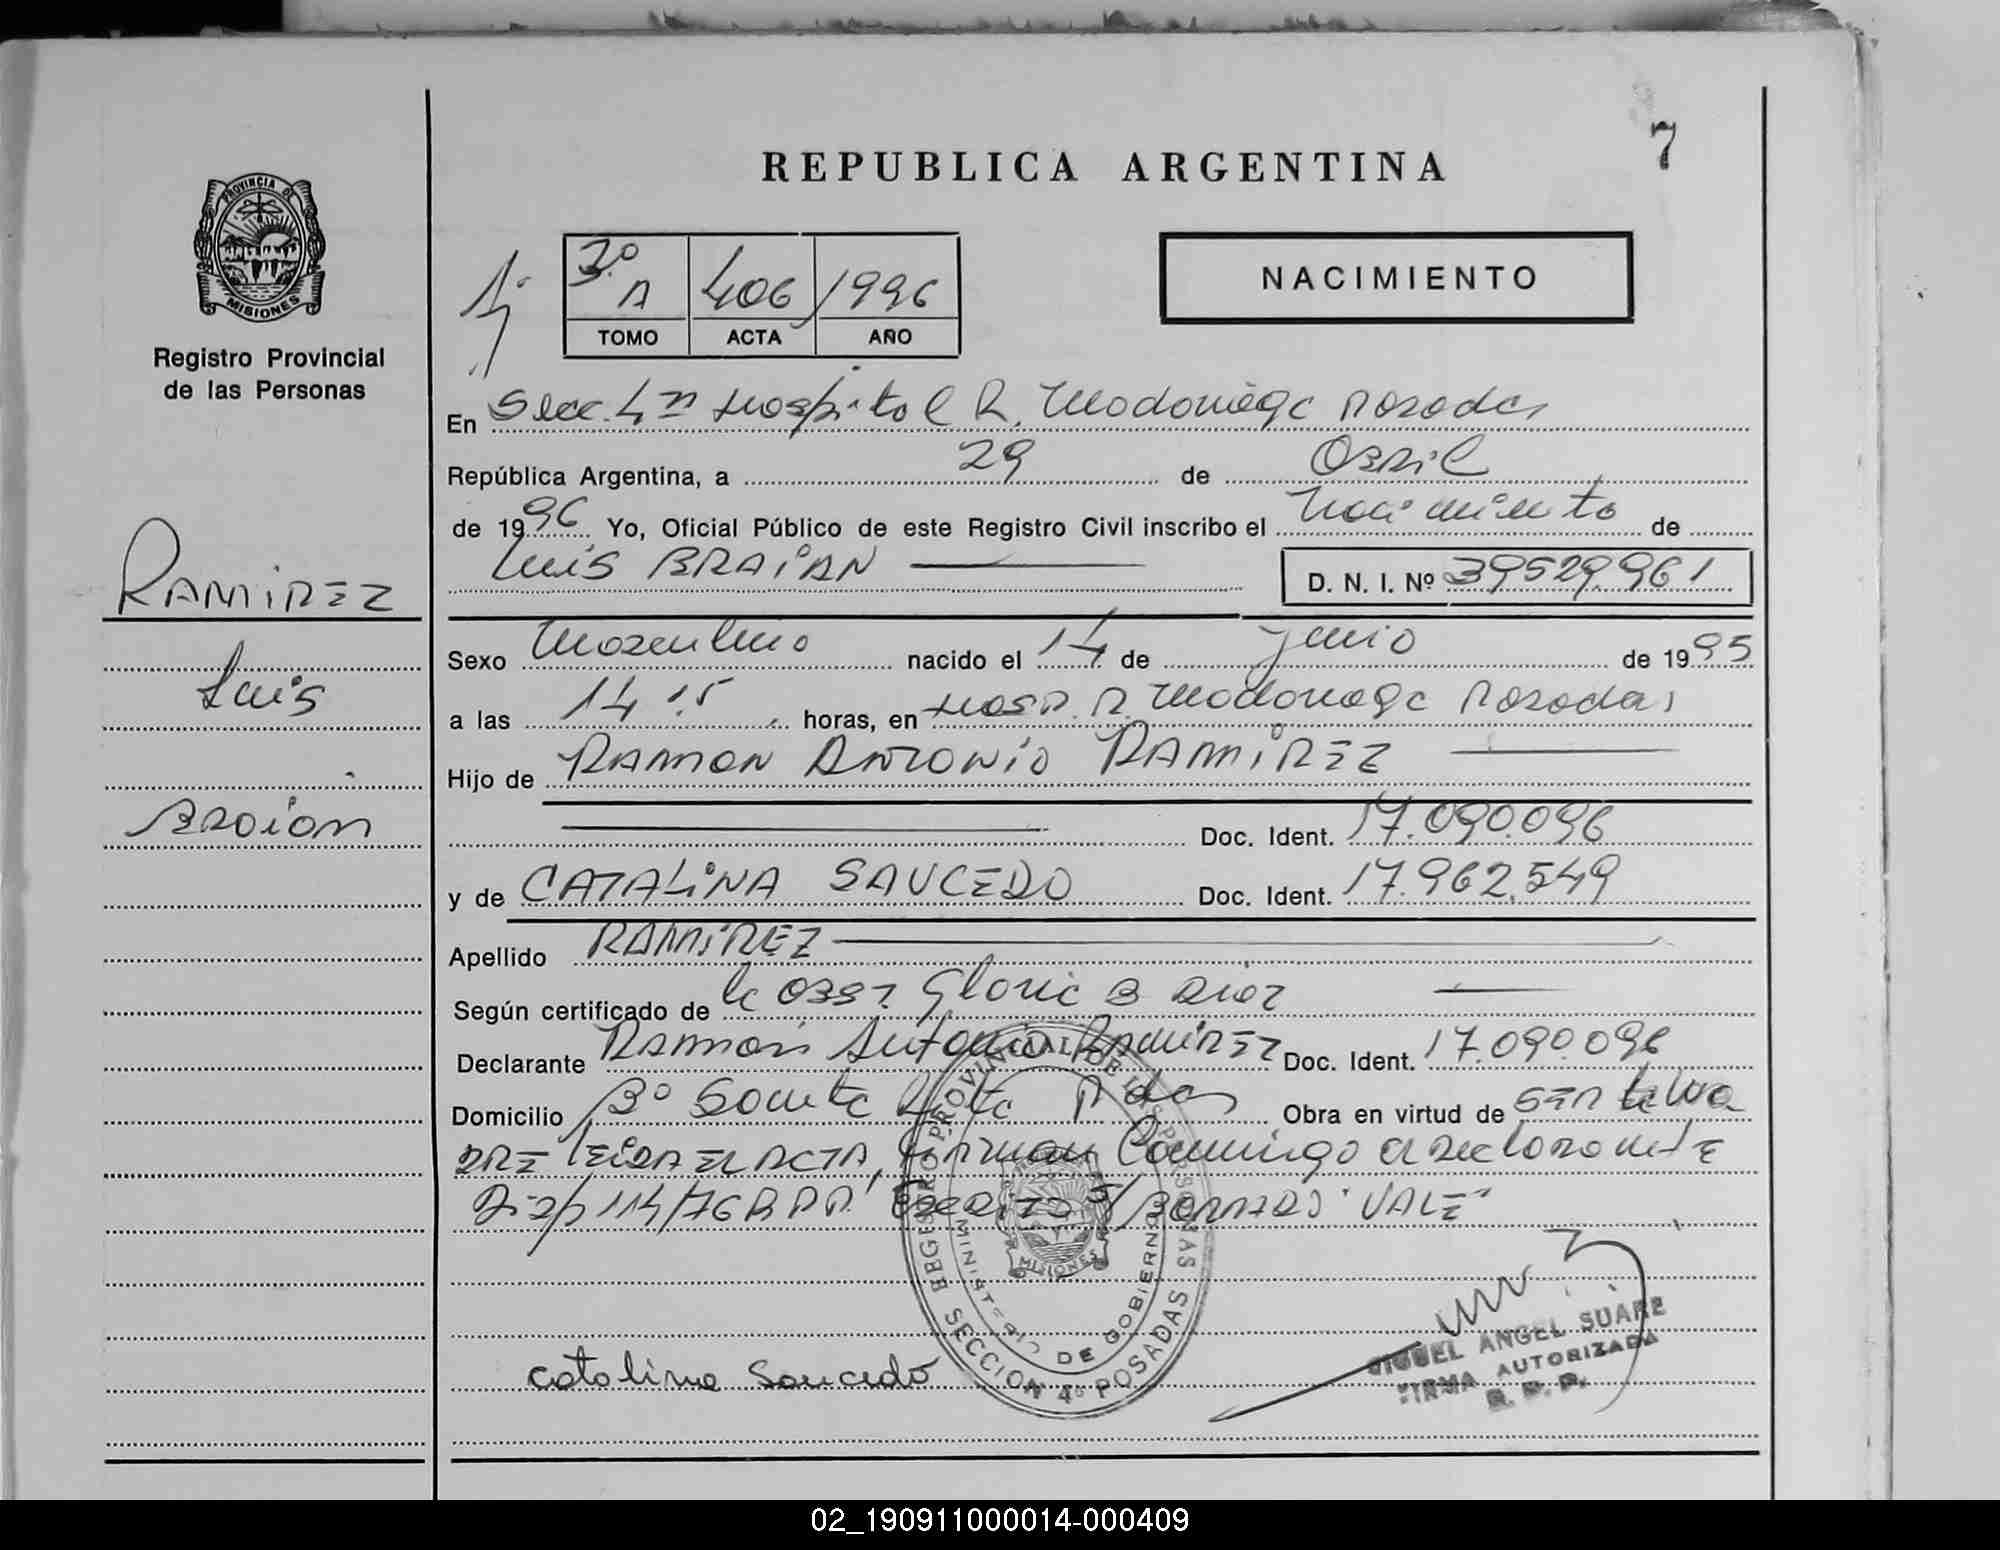 7
REPUBLICA ARGENTINA
PROVINCIA DE
MISIONES
Registro Provincial
de las Personas
3º A 406 1996
TOMO ACTA AÑO
NACIMIENTO
En Secc. 4ta Hospital R. Madariaga Posadas
República Argentina, a 29 de Abril
de 1996 Yo, Oficial Público de este Registro Civil inscribo el Nacimiento de
Luis BRAIAN D. N. I. Nº 39529.961
RAMIREZ
Luis
Braian
Sexo Masculino nacido el 14 de Junio de 1995
a las 14 15 horas, en Hosp. R. Madariaga Posadas
Hijo de RAMON ANTONIO RAMIREZ
Doc. Ident. 17.090.096
y de CATALINA SAUCEDO Doc. Ident. 17.962.549
Apellido RAMIREZ
Según certificado de la Obst. Gloria B Diaz
Declarante Ramon Antonio RAMIREZ Doc. Ident. 17.090.096
Domicilio Bº Santa Rita Pdas Obra en virtud de SER
LEIDA EL ACTA, Firman Conmigo el declarante
Disp 114/96 R P P. Escrito S/BORRADO "VALE"
REGISTRO PROVINCIAL DE LAS PERSONAS
MINISTERIO DE GOBIERNO
MISIONES
SECCION 4ª POSADAS
Catalina Saucedo
MIGUEL ANGEL SUARE
FIRMA AUTORIZADA
R. P. P.
02_190911000014-000409